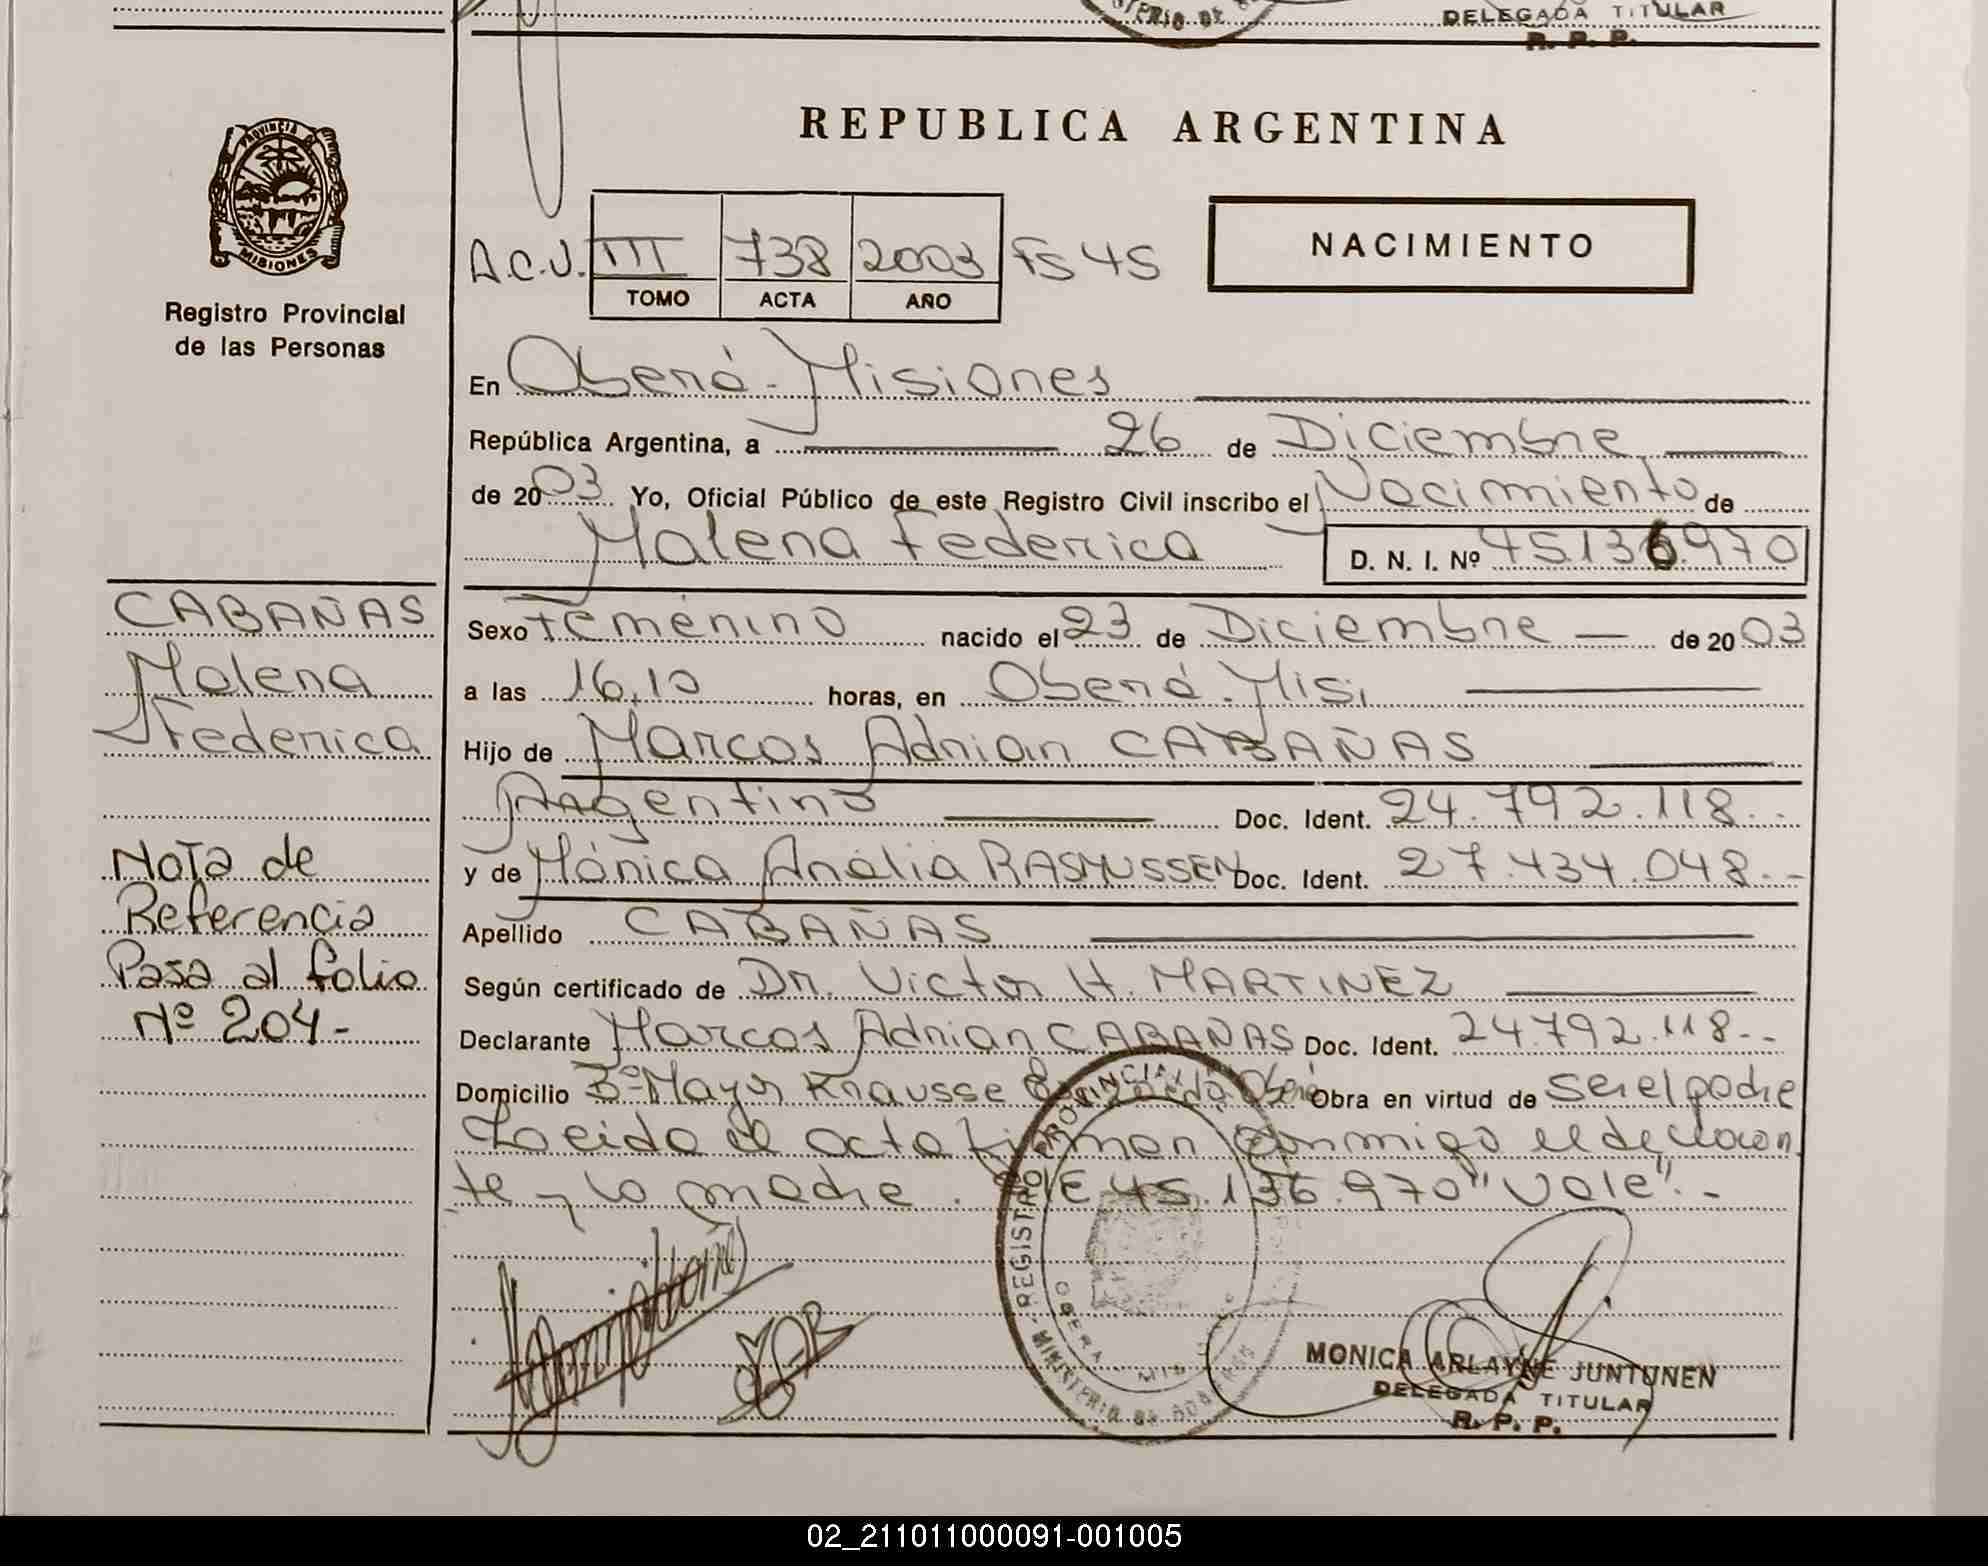 DELEGADA TITULAR
R. P. P.
PROVINCIA
MISIONES
Registro Provincial
de las Personas
REPUBLICA ARGENTINA
NACIMIENTO
A.C.U. III 738 2003 Fs 45
TOMO ACTA AÑO
En Oberá - Misiones
República Argentina, a 26 de Diciembre
de 2003 Yo, Oficial Público de este Registro Civil inscribo el Nacimiento de
Malena Federica D. N. I. Nº 45.136.970
CABAÑAS
Malena
Federica
Nota de
Referencia
Pasa al folio
Nº 204-
Sexo Femenino nacido el 23 de Diciembre de 2003
a las 16,10 horas, en Oberá - Misi,
Hijo de Marcos Adrian CABAÑAS
Argentino Doc. Ident. 24.792.118.-
y de Mónica Analia RASMUSSEN Doc. Ident. 27.434.048.-
Apellido CABAÑAS
Según certificado de Dr. Victor H. MARTINEZ
Declarante Marcos Adrian CABAÑAS Doc. Ident. 24.792.118.-
Domicilio Bº Mayor Krausse Oberá Obra en virtud de ser el padre
Leida el acta firman conmigo el declaran
te y la madre. E 45.136.970 "Vale".-
REGISTRO PROVINCIAL
OBERA
MINISTERIO DE
MONICA ARLAYNE JUNTUNEN
DELEGADA TITULAR
R. P. P.
02_211011000091-001005